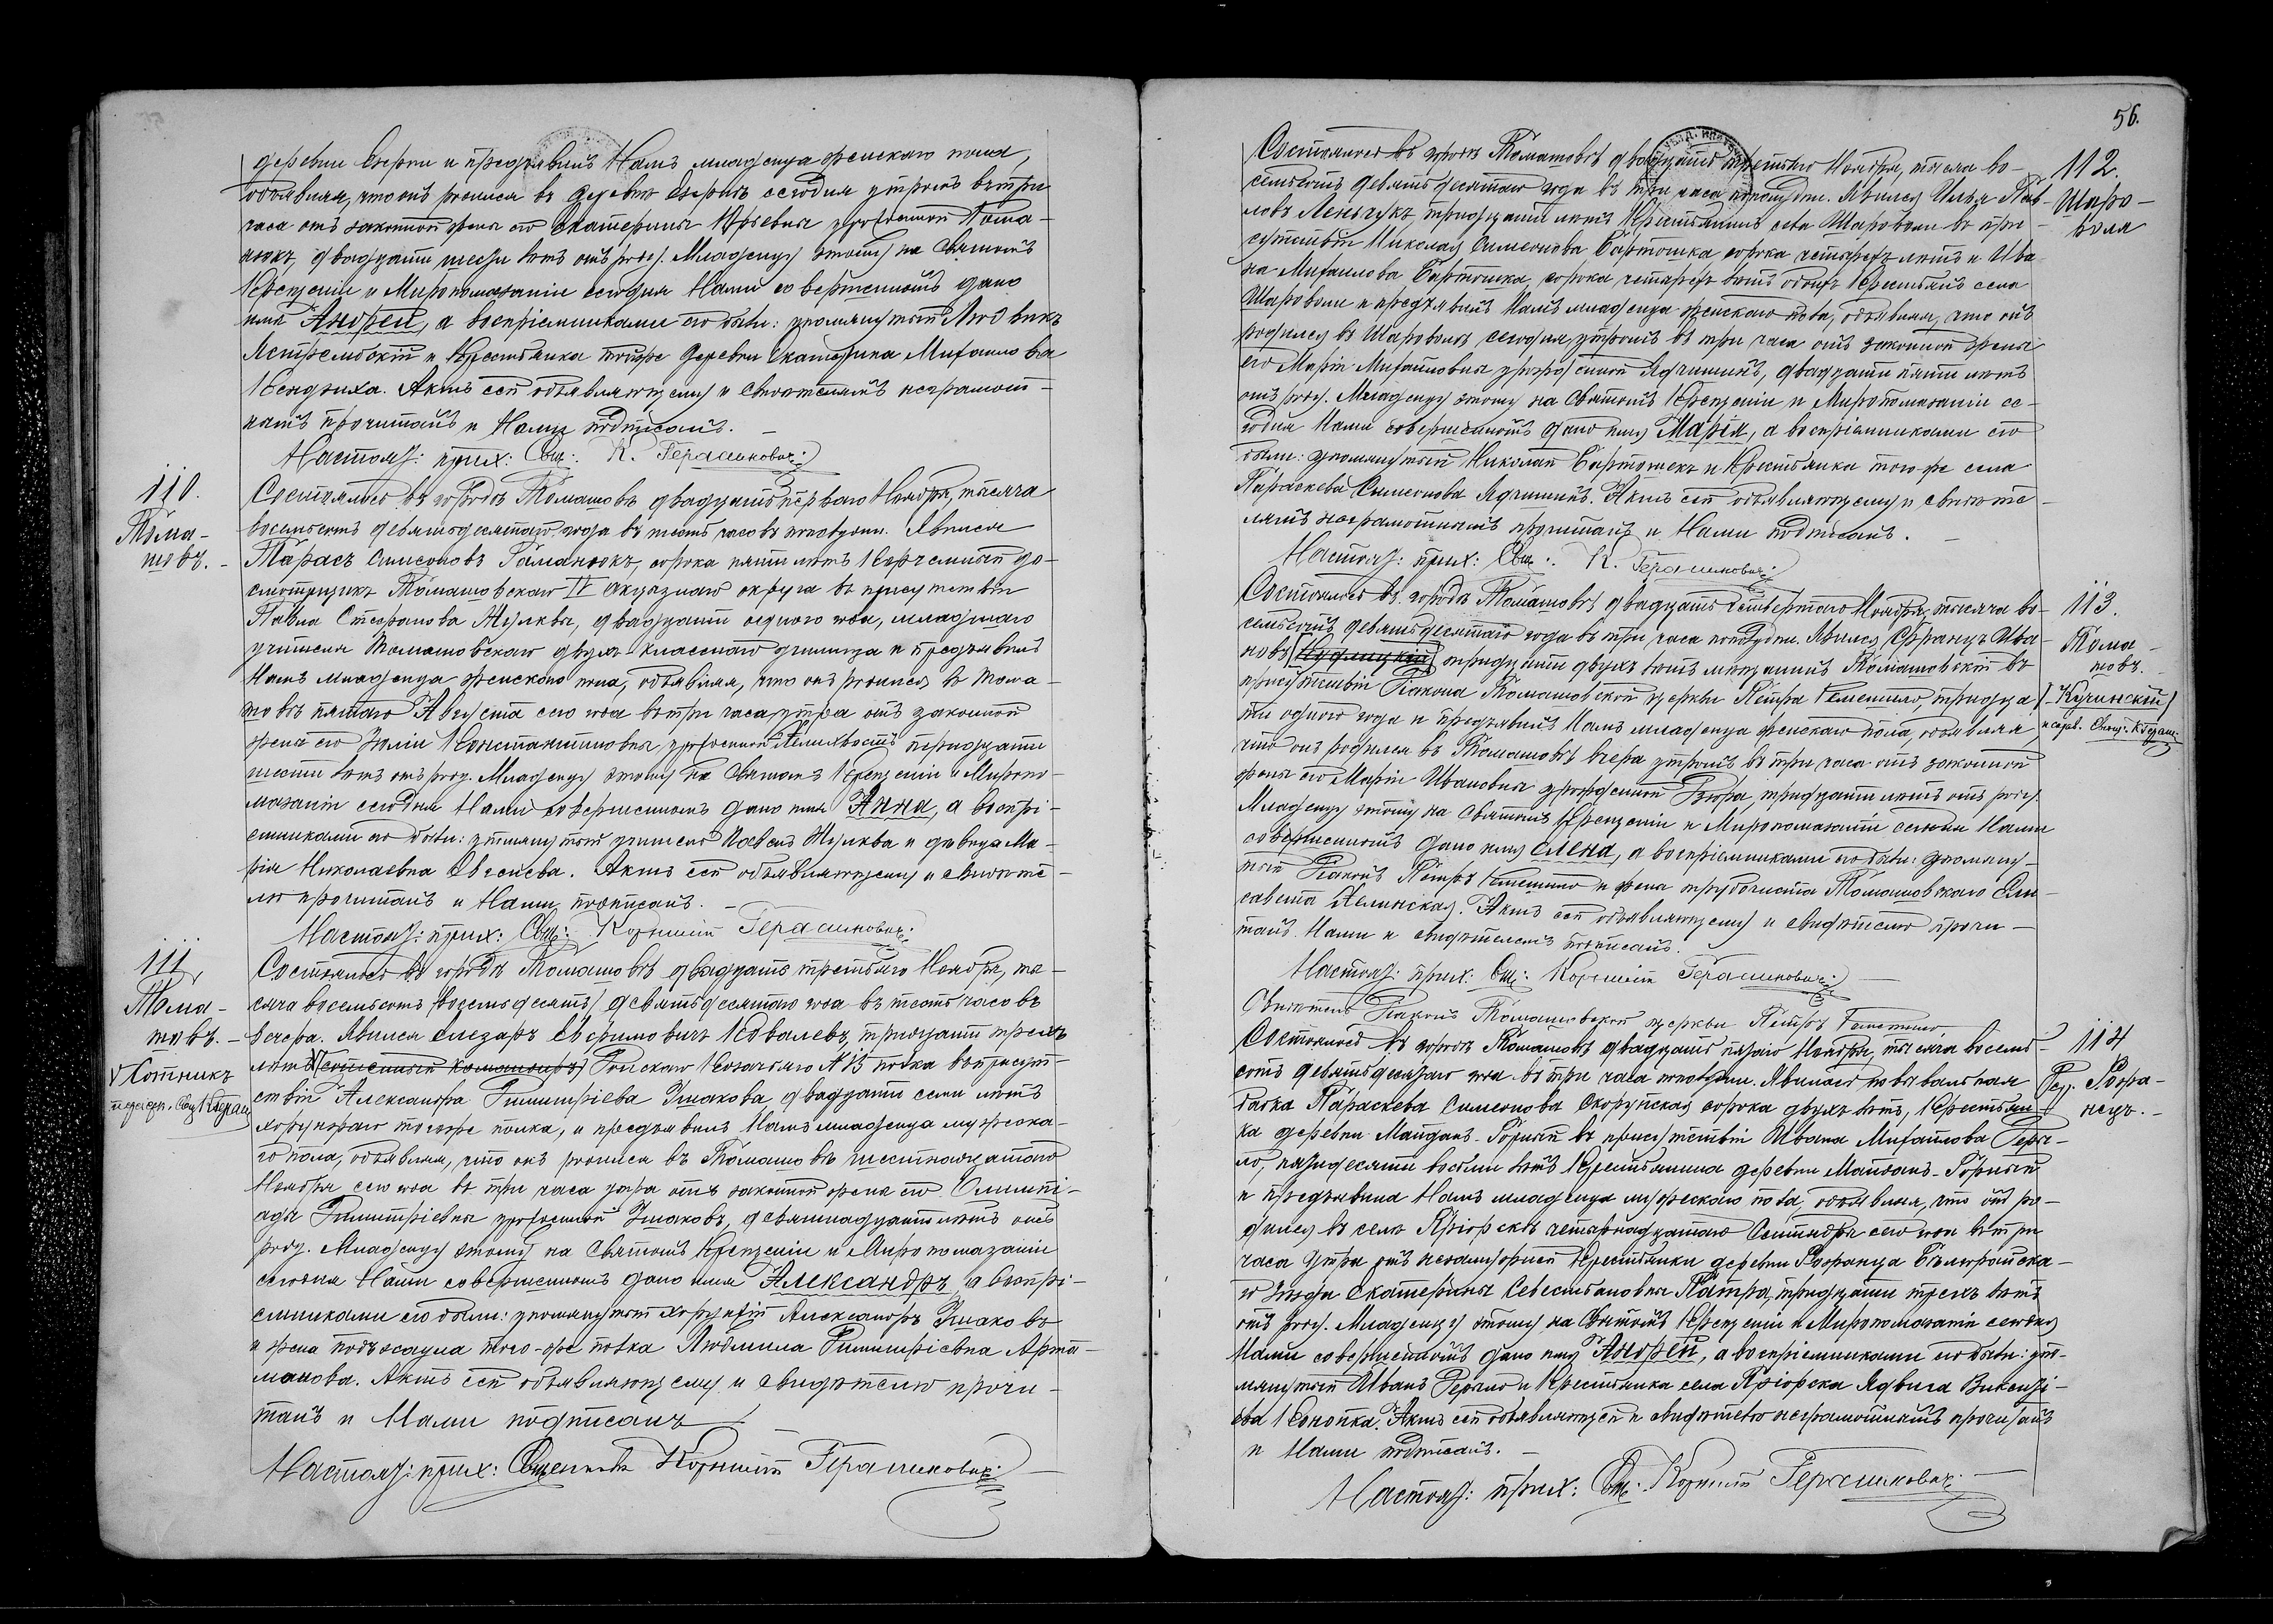 деревни Езерни и предъявилъ Намъ младенца женскаго пола,
объявляя, что онъ родился въ деревнѣ Езернѣ сегодня утромъ въ три
часа отъ законной жены его Екатерины Юрьевны урожденной
двадцати шести лѣтъ отъ роду. Младенцу этому на Святомъ
Крещеніи и Миропомазаніи сегодня Нами совершенномъ дано
имя Андрей, а воспріемниками его были: упомянутый Людвикъ
и Крестьянка тойже деревни Екатерина Михайлова
Актъ сей объявляющему и свидѣтелямъ неграмот-
нымъ прочитанъ и Нами подписанъ. —
Настоят: прих: Свщ: К. Герасимовичъ
110.
Тома-
шовъ. -
Состоялось въ городѣ Томашовѣ двадцать перваго Ноября, тысяча
восемьсотъ девяностодесятаго года въ шесть часовъ пополудни. Явился
Тарасъ Симеоновъ Романюкъ, сорока пяти лѣтъ Корчемный до-
смотрщикъ Томашовскаго IV Акцизнаго округа въ присутствіи
Павла Стефанова Жулквы, двадцати одного года, младшаго
учителя Томашовскаго двухъ-класснаго училища и предъявилъ
Намъ младенца женскаго пола, объявляя, что онъ родился въ Тома-
шовѣ пятаго Августа сего года въ три часа утра отъ законной
жены его Юліи Константиновны, урожденной тридцати
шести лѣтъ отъ роду. Младенцу этому на Святомъ Крещеніи и Миропо-
мазаніи сегодня Нами совершенномъ дано имя Анна, а воспрі-
емниками его были: упомянутый учитель Павелъ Жулква и дѣвица Ма-
рія Николаевна Евсеева. Актъ сей объявляющему и свидѣте-
лю прочитанъ и Нами подписанъ. —
Настоят: прих: Свщ: Корнилій Герасимовичъ
111.
Тома-
шовъ. -
V Сотникъ
Состоялось въ городѣ Томашовѣ двадцать третьяго Ноября, ты-
сяча восемьсотъ (восемьдесятъ) девяностодесятаго года въ шесть часовъ
вечера. Явился Елеазаръ Ефимовичъ Ковалевъ, тридцати трехъ
лѣтъ V (сотенный командиръ) Донскаго Козачьяго № 13 полка въ присут-
ствіи Александра Димитріева Ушакова двадцати семи лѣтъ
хорунжаго тогоже полка, и предъявилъ Намъ младенца мужска-
го пола, объявляя, что онъ родился въ Томашовѣ шестнадцатаго
Ноября сего года въ три часа утра отъ законной жены его Олимпі-
ады Димитріевны урожденной Ушаковъ, девятнадцати лѣтъ отъ
роду. Младенцу этому на Святомъ Крещеніи и Миропомазаніи
сегодня Нами совершенномъ дано имя Александръ, а воспрі-
емниками его были: упомянутый хорунжій Александръ Ушаковъ
и жена подъесаула того-же полка Людмила Димитріевна Арта-
манова. Актъ сей объявляющему и свидѣтелю прочи-
танъ и Нами подписанъ
Настоят: прих: Священникъ Корнилій Герасимовичъ
56.
112.
Шаро-
воля
Состоялось въ городѣ Томашовѣ двадцать третьяго Ноября, тысяча во-
семьсотъ девяностодесятаго года въ три часа пополудни. Явился Илья Пав-
ловъ Леньчукъ, тридцати лѣтъ Крестьянинъ села Шароволи въ при-
сутствіи Николая Симеонова Бартошка сорока четырехъ лѣтъ и Ива-
на Михайлова Бартошка, сорока четырехъ лѣтъ обоихъ Крестьянъ села
Шароволи и предъявилъ Намъ младенца женскаго пола, объявляя, что онъ
родился въ Шароволѣ сегодня утромъ въ три часа отъ законной жены
его Маріи Михайловны урожденной Ядчишинъ, двадцати пяти лѣтъ
отъ роду. Младенцу этому на Святомъ Крещеніи и Миропомазаніи се-
годня Нами совершенномъ дано имя Марія, а воспріемниками его
были: упомянутый Николай Бартошекъ и Крестьянка того-же села
Параскева Симеонова Ядчишинъ. Актъ сей объявляющему и свидѣте-
лямъ неграмотнымъ прочитанъ и Нами подписанъ. —
Настоят: прих: Свщ: К. Герасимовичъ
113.
Тома
шовъ.
(Кучинскій)
Состоялось въ городѣ Томашовѣ двадцать четвертаго Ноября, тысяча во-
семьсотъ девяностодесятаго года въ три часа пополудни. Явился Францъ Ива-
новъ тридцати двухъ лѣтъ мѣщанинъ Томашовскій въ
присутствіи Діакона Томашовской церкви Петра тридца-
ти одного года и предъявилъ Намъ младенца женскаго пола, объявляя,
что онъ родился въ Томашовѣ вчера утромъ въ три часа отъ законной
жены его Маріи Ивановны урожденной тридцати лѣтъ отъ роду.
Младенцу этому на Святомъ Крещеніи и Миропомазаніи сегодня Нами
совершенномъ дано имя Елена, а воспріемниками его были: упомяну-
тый Діаконъ Петръ и жена Томашовскаго Ели-
савета Актъ сей объявляющему и свидѣтелю прочи-
танъ Нами и свидѣтелемъ подписанъ.
Настоят: прих: Свщ: Корнилій Герасимовичъ
Свидѣтель Діаконъ Томашовской церкви Петръ
114
Дер. Рофа-
нецъ. -
Состоялось въ городѣ Томашовѣ двадцать пятаго Ноября, тысяча восемь-
сотъ девяностодесятаго года въ три часа пополудни. Явилась повивальная
бабка Параскева Симеонова Скорупская сорока двухъ лѣтъ, Крестьян-
ка деревни Майданъ-Горный въ присутствіи Ивана Михайлова
пятидесяти восьми лѣтъ Крестьянина деревни Майданъ-Горный
и предъявила Намъ младенца мужескаго пола, объявляя, что онъ ро-
дился въ селѣ четырнадцатаго Сентября сего года въ три
часа утра отъ незамужней Крестьянки деревни Бѣлгорайска-
го Уѣзда Екатерины тридцати трехъ лѣтъ
отъ роду. Младенцу этому на Святомъ Крещеніи и Миропомазаніи сегодня
Нами совершенномъ дано имя Андрей, а воспріемниками его были: упо-
мянутый Иванъ и Крестьянка села Ядвига
Актъ сей объявляющей и свидѣтелю неграмотнымъ прочитанъ
и Нами подписанъ. —
Настоят: прих: Свщ: Корнилій Герасимовичъ